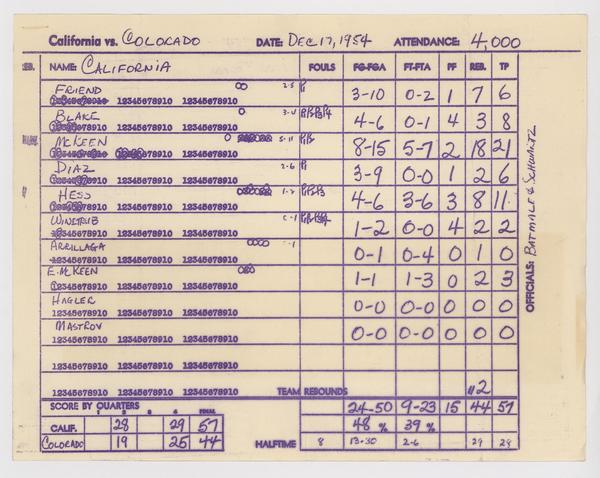 California vs. COLORADO DATE: DEC 17, 1954 ATTENDANCE: 4,000
NAME: CALIFORNIA FOULS FG-FGA FT-FTA PF REB. TP
FRIEND 2-5 P1 3-10 0-2 1 7 6
12345678910 12345678910 12345678910
BLAKE 3-4 P1P2P3P4 4-6 0-1 4 3 8
12345678910 12345678910 12345678910
MCKEEN 5-11 P1P2 8-15 5-7 2 18 21
12345678910 12345678910 12345678910
DIAZ 2-6 P1 3-9 0-0 1 2 6
12345678910 12345678910 12345678910
HESS 1-2 P1P2P3 4-6 3-6 3 8 11
12345678910 12345678910 12345678910
WINETRIB 0-1 1-2 0-0 4 2 2
12345678910 12345678910 12345678910
ARRILLAGA 0-1 0-4 0 1 0
12345678910 12345678910 12345678910
E. MCKEEN 1-1 1-3 0 2 3
12345678910 12345678910 12345678910
HAGLER 0-0 0-0 0 0 0
12345678910 12345678910 12345678910
MASTROV 0-0 0-0 0 0 0
12345678910 12345678910 12345678910
12345678910 12345678910 12345678910
12345678910 12345678910 12345678910 TEAM REBOUNDS 2
SCORE BY QUARTERS 24-50 9-23 15 44 57
1 2 3 4 FINAL
CALIF. 28 29 57 48 % 39 %
COLORADO 19 25 44 HALFTIME 8 13-30 2-6 29 28
OFFICIALS: BATMALE & SCHEWITZ